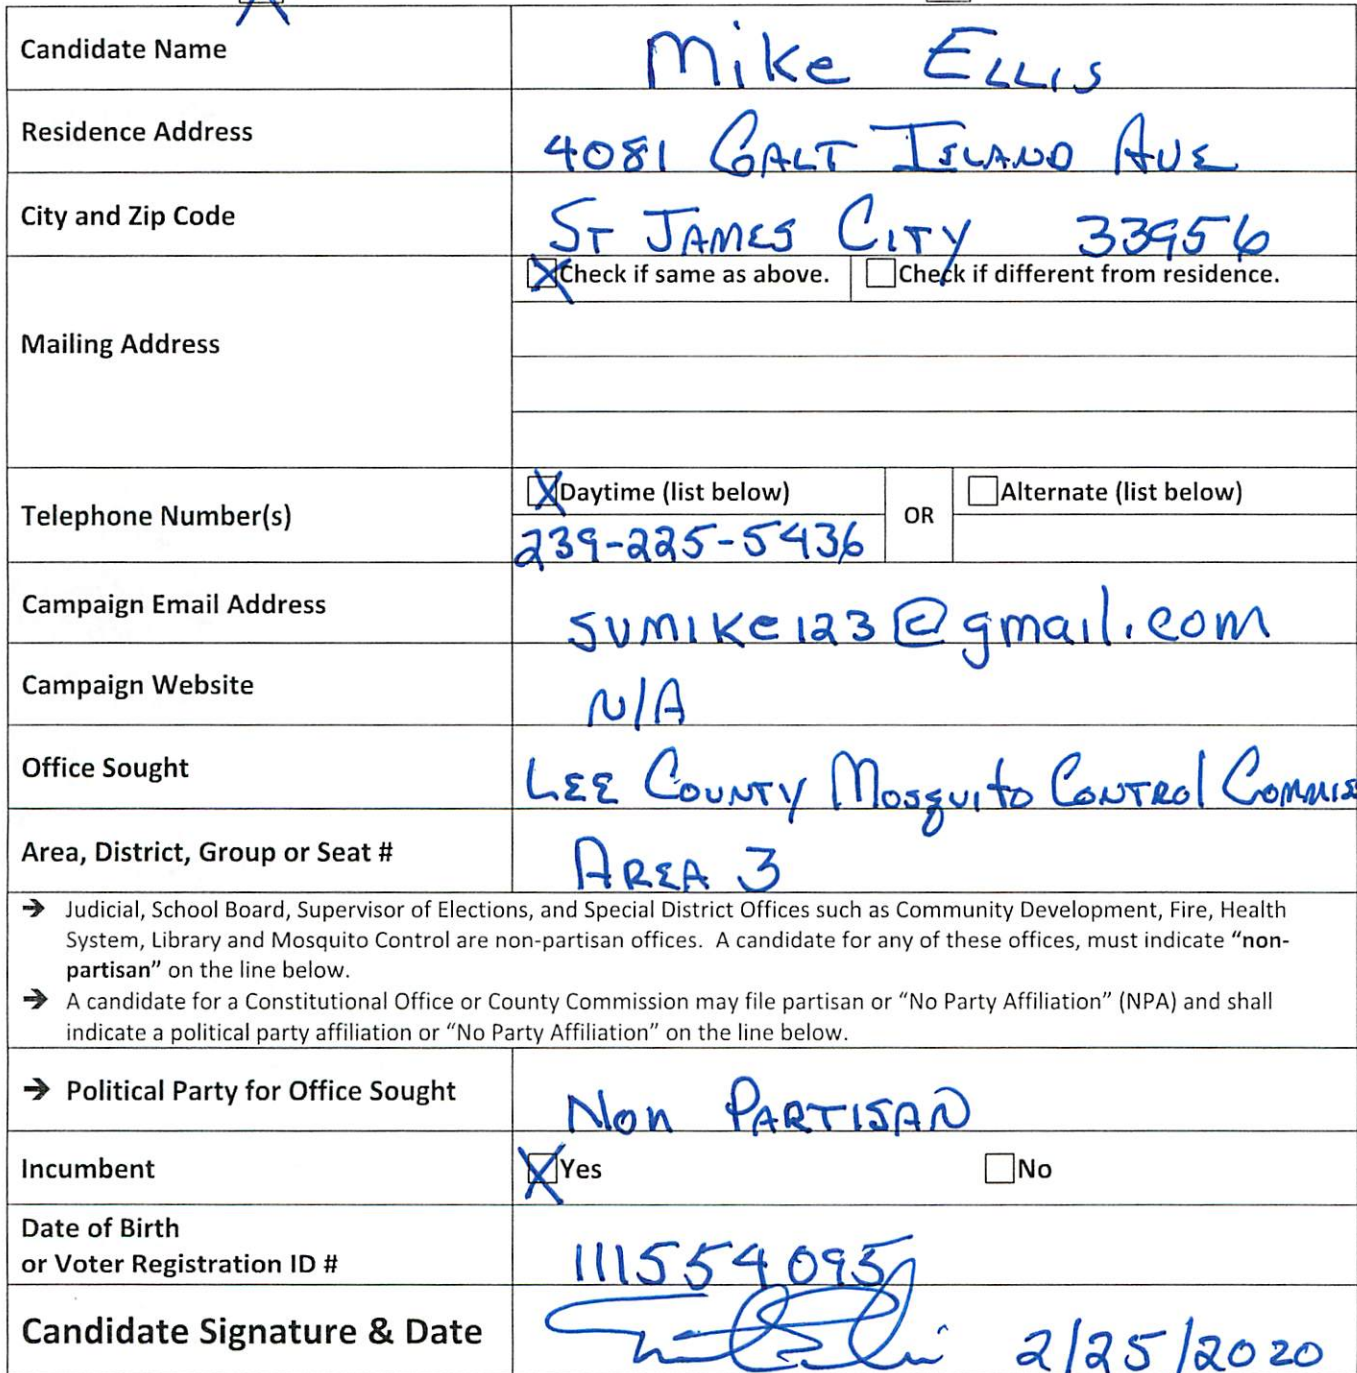 Candidate Name Mike ELLIS
Residence Address 4081 GALT ISLAND AVE
City and Zip Code ST JAMES CITY 33956
Check if same as above. Check if different from residence.
Mailing Address
Daytime (list below) OR Alternate (list below)
Telephone Number(s)
239-225-5436
Campaign Email Address sumike123@gmail.com
Campaign Website N/A
Office Sought LEE COUNTY Mosquito CONTROl COMMIS
Area, District, Group or Seat # AREA 3
→ Judicial, School Board, Supervisor of Elections, and Special District Offices such as Community Development, Fire, Health
System, Library and Mosquito Control are non-partisan offices. A candidate for any of these offices, must indicate “non-
partisan” on the line below.
→ A candidate for a Constitutional Office or County Commission may file partisan or “No Party Affiliation” (NPA) and shall
indicate a political party affiliation or “No Party Affiliation” on the line below.
→ Political Party for Office Sought Non PARTISAN
Incumbent Yes No
Date of Birth
or Voter Registration ID # 111554095
Candidate Signature & Date 2/25/2020